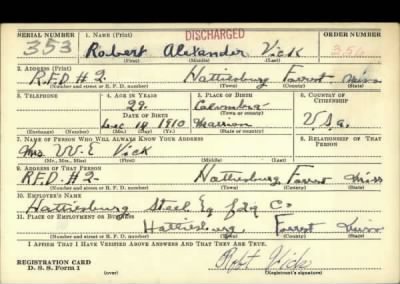 DISCHARGED
SERIAL NUMBER 1. NAME (Print) ORDER NUMBER
353 Robert Alexander Vick 356
(First) (Middle) (Last)
2. ADDRESS (Print)
R.F.D # 2. Hattiesburg Forrest Miss
(Number and street or R. F. D. number) (Town) (County) (State)
3. TELEPHONE 4. AGE IN YEARS 5. PLACE OF BIRTH 6. COUNTRY OF CITIZENSHIP
29. Columbia
DATE OF BIRTH (Town or county)
Dec 19 1910 Marion U.S.a.
(Exchange) (Number) (Mo.) (Day) (Yr.) (State or country)
7. NAME OF PERSON WHO WILL ALWAYS KNOW YOUR ADDRESS 8. RELATIONSHIP OF THAT PERSON
Mrs W. E Vick
(Mr., Mrs., Miss) (First) (Middle) (Last)
9. ADDRESS OF THAT PERSON
R.F.D # 2 Hattiesburg Forrest Miss
(Number and street or R. F. D. number) (Town) (County) (State)
10. EMPLOYER'S NAME
Hattiesburg Steel Co
11. PLACE OF EMPLOYMENT OR BUSINESS
Hattiesburg Forrest Miss
(Number and street or R. F. D. number) (Town) (County) (State)
I AFFIRM THAT I HAVE VERIFIED ABOVE ANSWERS AND THAT THEY ARE TRUE.
REGISTRATION CARD Robt Vick
D. S. S. Form 1 (over) (Registrant's signature)